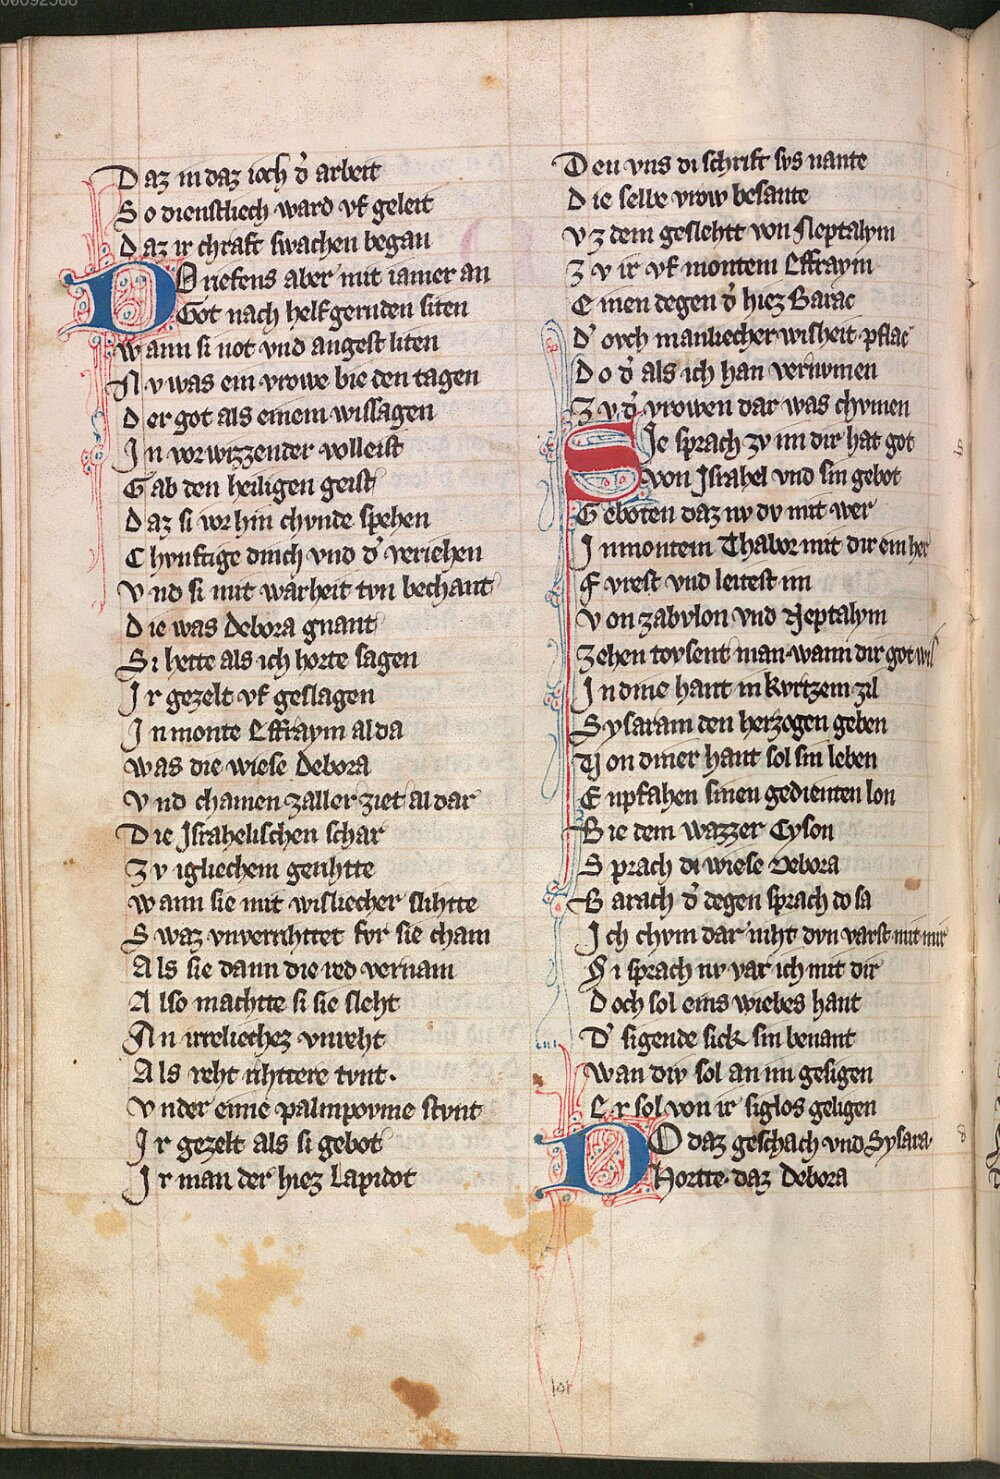 00092588
Daz in daz ioch d̾ arbeit
So dienstliech ward vf geleit
Daz ir chraft swachen began
DO riefens aber mit iamer an
Got nach helfgernden siten
Wann si not vnd angest liten
Nv was ein vrowe bie den tagen
Der got als einem wissagen
In vor wizzender volleist
Gab den heiligen geist
Daz si vor hin chvnde spehen
Chvnftige dinch vnd d̾ veriehen
Vnd si mit warheit tvn bechant
Die was Debora gnant
Si hette als ich horte sagen
Ir gezelt vf geslagen
In monte Effraym al da
Was die wiese Debora
Vnd chamen zaller ziet al dar
Die Israhelischen schar
Zv igliechem gerihtte
Wann sie mit wisliecher slihtte
Swaz vnverrihttet fvr sie cham
Als sie dann die red vernam
Also machtte si sie sleht
An irreliechez vnreht
Als reht rihttere tvnt.
Vnder eine palmpovme stvnt
Ir gezelt als si gebot
Ir man der hiez Lapidot
Den vns di schrift svs nante
Die selbe vrow besante
Vz dem geslehtt von Neptalym
Zv ir vf montem Effraym
Einen degen d̾ hiez Barac
D̾ ovch manliecher wisheit pflac
Do d̾ als ich han vernvmen
Zv d̾ vrowen dar was chvmen
SIe sprach zv im dir hat got
von Israhel vnd sin gebot
Geboten daz nv dv mit wer
In montem Thabor mit dir ein her
Fvrest vnd leitest im
Von zabvlon vnd Neptalym
Zehen tovsent man wann dir got wil
In dine hant in kvrtzem zil
Sysaram den herzogen geben
Von diner hant sol sin leben
Enpfahen sinen gedienten lon
Bie dem wazzer Cyson
Sprach di wiese Debora
Barach d̾ degen sprach do sa
Ich chvm dar niht dvn varst mit mir
Si sprach nv var ich mit dir
Doch sol eins wiebes hant
D̾ sigende sick sin benant
Wan div sol an im gesigen
Er sol von ir siglos geligen
DO daz geschach vnd Sysara
Hortte daz Debora
101